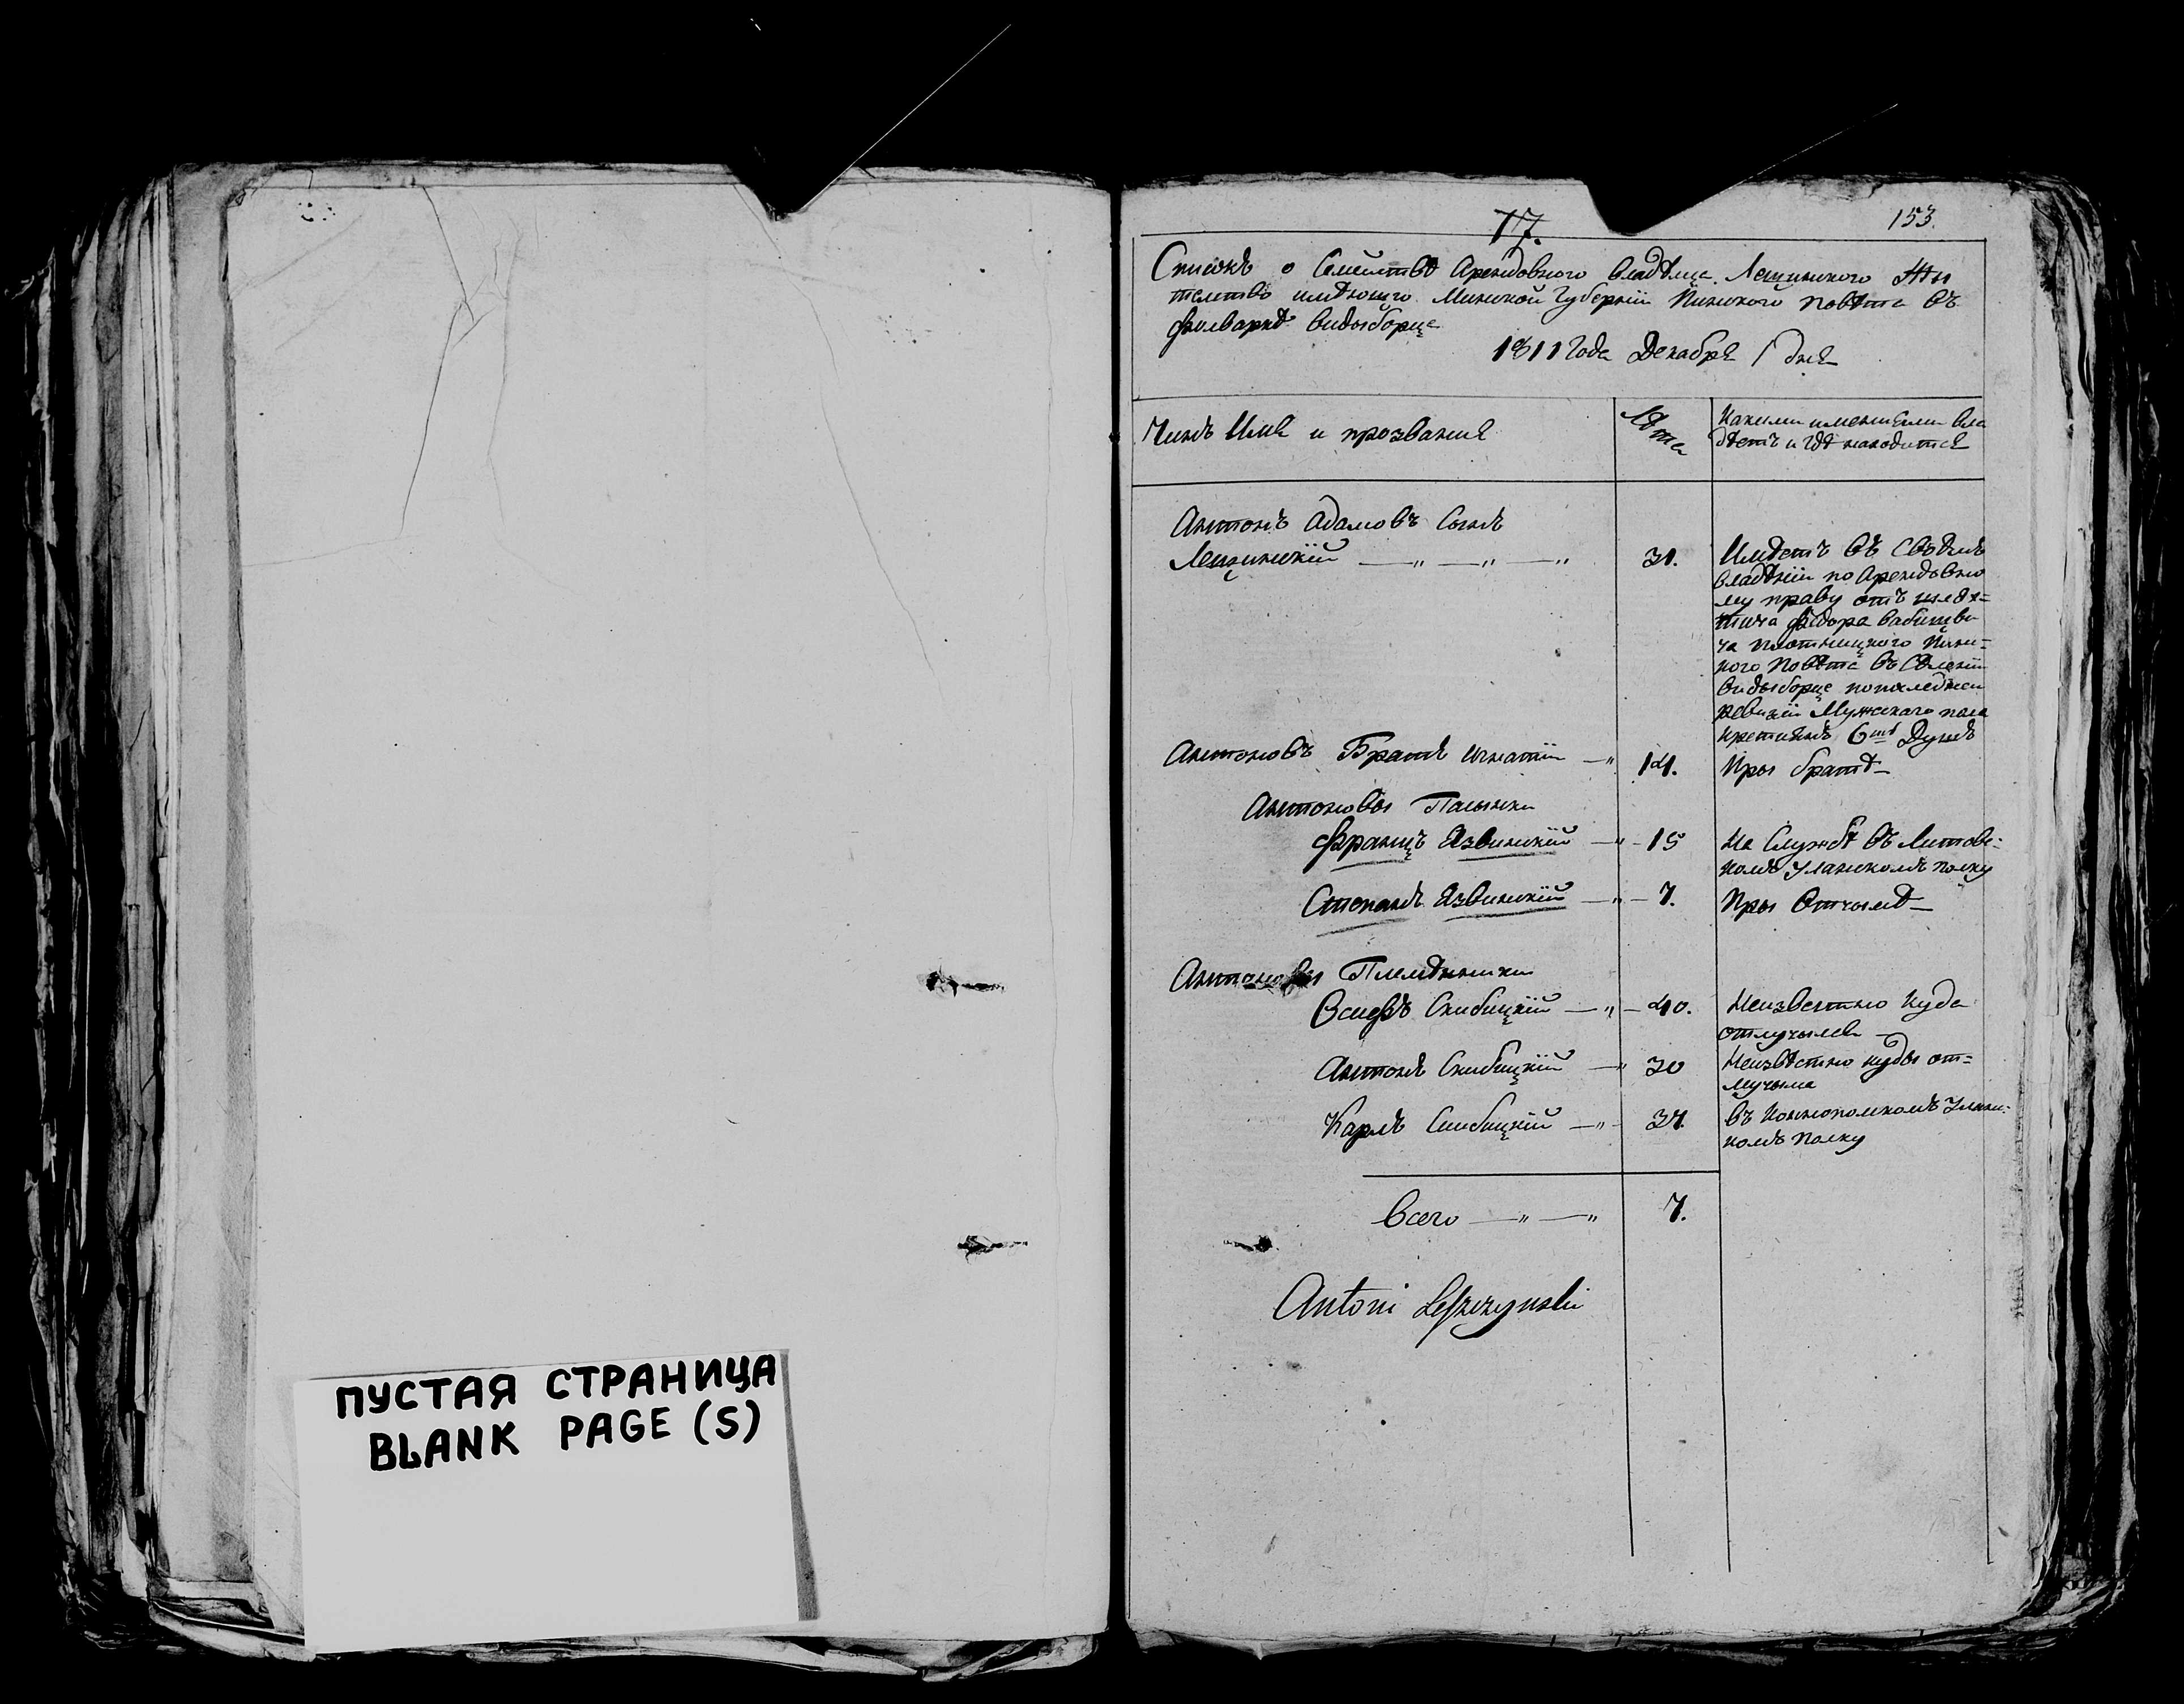 17.
153.
Списокъ о Семействѣ Арендовного владѣлца Лещинского Жи
телство имѣющего Минской Губерніи Пинского повѣта въ
фолваркѣ Видыборце
1811 Года Декабря 1 дня
Чинъ Имя и прозвания
Лѣта
Какими имениями вла
дѣетъ и гдѣ находится
Антонъ Адамовъ Сынъ
Лещинскій — „ — „ — „
31.
Имѣетъ въ Своемъ
владѣніи по Арендовно
му праву отъ шлях=
тича Фидора
Пинс=
кого Повѣта въ Селеніи
Видыборце по последней
ревизіи Мужскаго пола
крестянъ 6ть Душъ
Антоновъ Братъ Игнатій — „
14.
Пры братѣ —
Антоновы Пасынки
Францъ Язвинскій — „ — 15
На Службѣ въ Литовс=
комъ Уланскомъ полку
Степанъ Язвинскій — „ — 7.
Пры Отчымѣ —
Антоновы Племѣнники
Осифъ Скибицкій — „ — 40.
Неизвестно куда
отлучылся —
Антонъ Скибицкій — „ 30
Неизвѣстно куды от=
лучылся
Карлъ Скибицкій — „ 37.
въ Коннополскомъ Улан=
комъ полку
Всего — „ — „ 7.
Antoni Leszczynski
ПУСТАЯ СТРАНИЦА
BLANK PAGE (S)